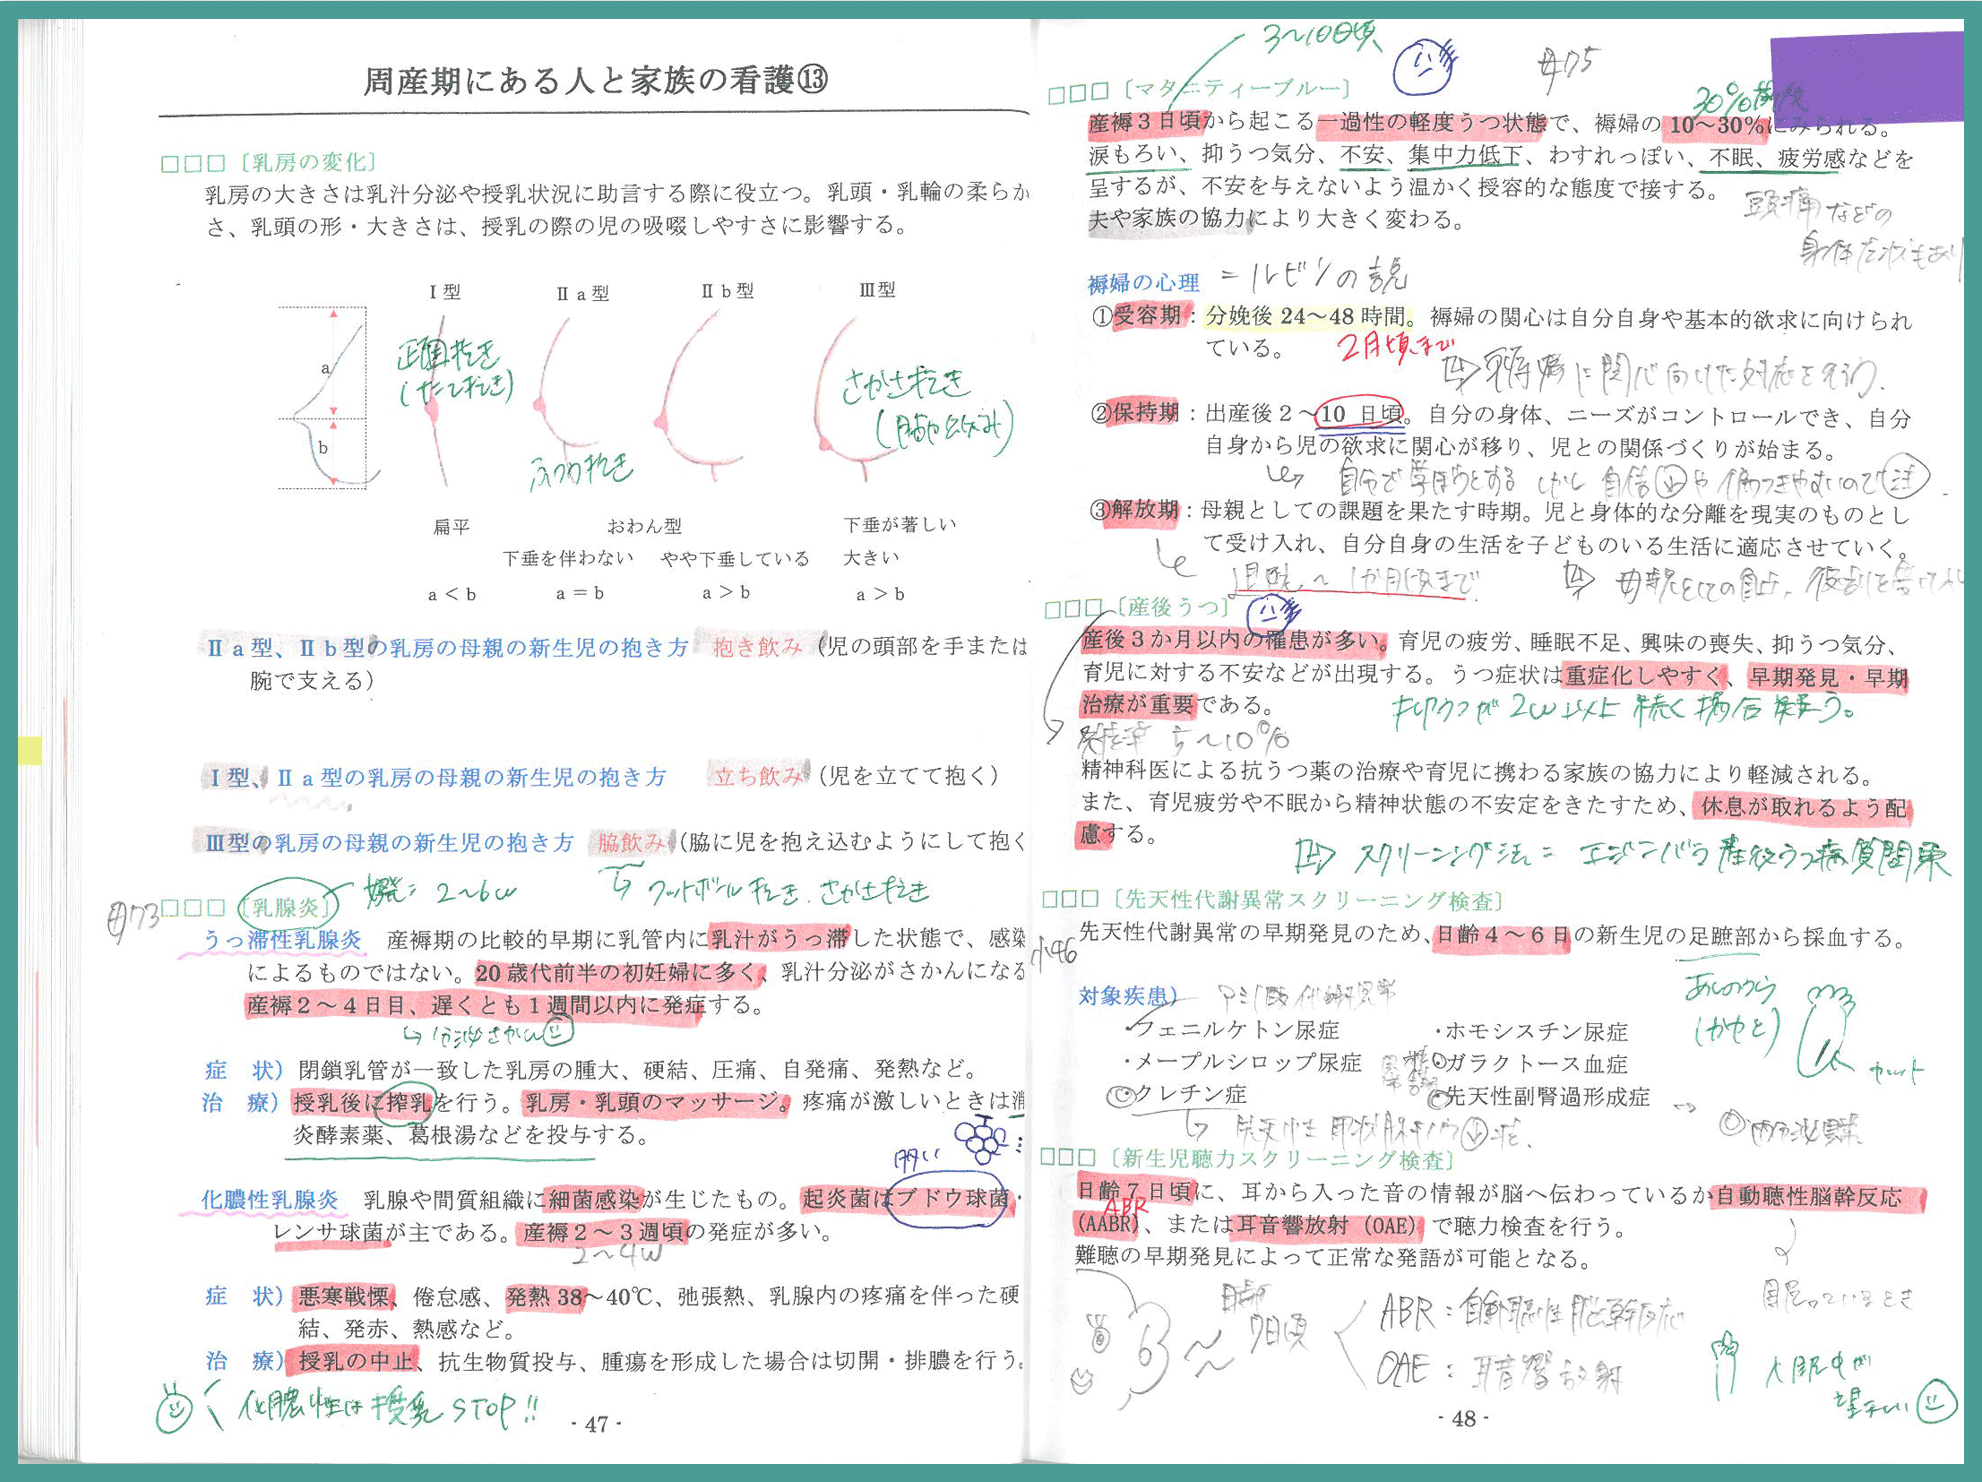 周産期にある人と家族の看護⑬
□□□〔乳房の変化〕
乳房の大きさは乳汁分泌や授乳状況に助言する際に役立つ。乳頭・乳輪の柔らか
さ、乳頭の形・大きさは、授乳の際の児の吸啜しやすさに影響する。
Ⅰ型 Ⅱa型 Ⅱb型 Ⅲ型
a
b
正面抱き
(たて抱き)
よこ抱き
さかさ抱き
扁平 おわん型 下垂が著しい
下垂を伴わない やや下垂している 大きい
a<b a=b a>b a>b
Ⅱa型、Ⅱb型の乳房の母親の新生児の抱き方 抱き飲み(児の頭部を手または
腕で支える)
Ⅰ型、Ⅱa型の乳房の母親の新生児の抱き方 立ち飲み(児を立てて抱く)
Ⅲ型の乳房の母親の新生児の抱き方 脇飲み(脇に児を抱え込むようにして抱く
フットボール抱き、さかさ抱き
母73
□□□〔乳腺炎〕 2〜6w
うっ滞性乳腺炎 産褥期の比較的早期に乳管内に乳汁がうっ滞した状態で、感染
によるものではない。20歳代前半の初妊婦に多く、乳汁分泌がさかんになる
産褥2〜4日目、遅くとも1週間以内に発症する。
↳分泌さかん
症 状)閉鎖乳管が一致した乳房の腫大、硬結、圧痛、自発痛、発熱など。
治 療)授乳後に搾乳を行う。乳房・乳頭のマッサージ。疼痛が激しいときは消
炎酵素薬、葛根湯などを投与する。
化膿性乳腺炎 乳腺や間質組織に細菌感染が生じたもの。起炎菌はブドウ球菌・
レンサ球菌が主である。産褥2〜3週頃の発症が多い。
2〜4w
症 状)悪寒戦慄、倦怠感、発熱38〜40℃、弛張熱、乳腺内の疼痛を伴った硬
結、発赤、熱感など。
治 療)授乳の中止、抗生物質投与、腫瘍を形成した場合は切開・排膿を行う。
化膿性は授乳STOP!!
- 47 -
3〜10日頃
母75
30%前後
□□□〔マタニティーブルー〕
産褥3日頃から起こる一過性の軽度うつ状態で、褥婦の10〜30%にみられる。
涙もろい、抑うつ気分、不安、集中力低下、わすれっぽい、不眠、疲労感などを
呈するが、不安を与えないよう温かく授容的な態度で接する。
夫や家族の協力により大きく変わる。
頭痛などの
身体症状もあり
褥婦の心理 =ルビンの説
①受容期:分娩後24〜48時間。褥婦の関心は自分自身や基本的欲求に向けられ
ている。
2日頃まで
②保持期:出産後2〜10日頃。自分の身体、ニーズがコントロールでき、自分
自身から児の欲求に関心が移り、児との関係づくりが始まる。
③解放期:母親としての課題を果たす時期。児と身体的な分離を現実のものとし
て受け入れ、自分自身の生活を子どものいる生活に適応させていく。
〜1か月頃まで
□□□〔産後うつ〕
産後3か月以内の罹患が多い。育児の疲労、睡眠不足、興味の喪失、抑うつ気分、
育児に対する不安などが出現する。うつ症状は重症化しやすく、早期発見・早期
治療が重要である。
抑うつが2w以上続く場合疑う。
発症率 5〜10%
精神科医による抗うつ薬の治療や育児に携わる家族の協力により軽減される。
また、育児疲労や不眠から精神状態の不安定をきたすため、休息が取れるよう配
慮する。
スクリーニング法=エジンバラ産後うつ病質問票
□□□〔先天性代謝異常スクリーニング検査〕
小46
先天性代謝異常の早期発見のため、日齢4〜6日の新生児の足蹠部から採血する。
あしのうら
(かかと)
カット
対象疾患) アミノ酸代謝異常
・フェニルケトン尿症 ・ホモシスチン尿症
・メープルシロップ尿症 ・ガラクトース血症
・クレチン症 ・先天性副腎過形成症
内分泌異常
□□□〔新生児聴力スクリーニング検査〕
日齢7日頃に、耳から入った音の情報が脳へ伝わっているか自動聴性脳幹反応
ABR
(AABR)、または耳音響放射(OAE)で聴力検査を行う。
難聴の早期発見によって正常な発語が可能となる。
日齢
7日頃
ABR:自動聴性脳幹反応
OAE:耳音響放射
- 48 -